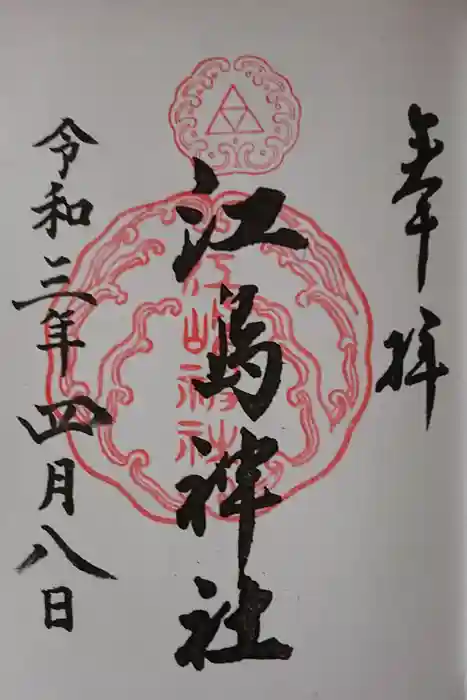 奉拝
江島神社
江島神社
令和三年四月八日